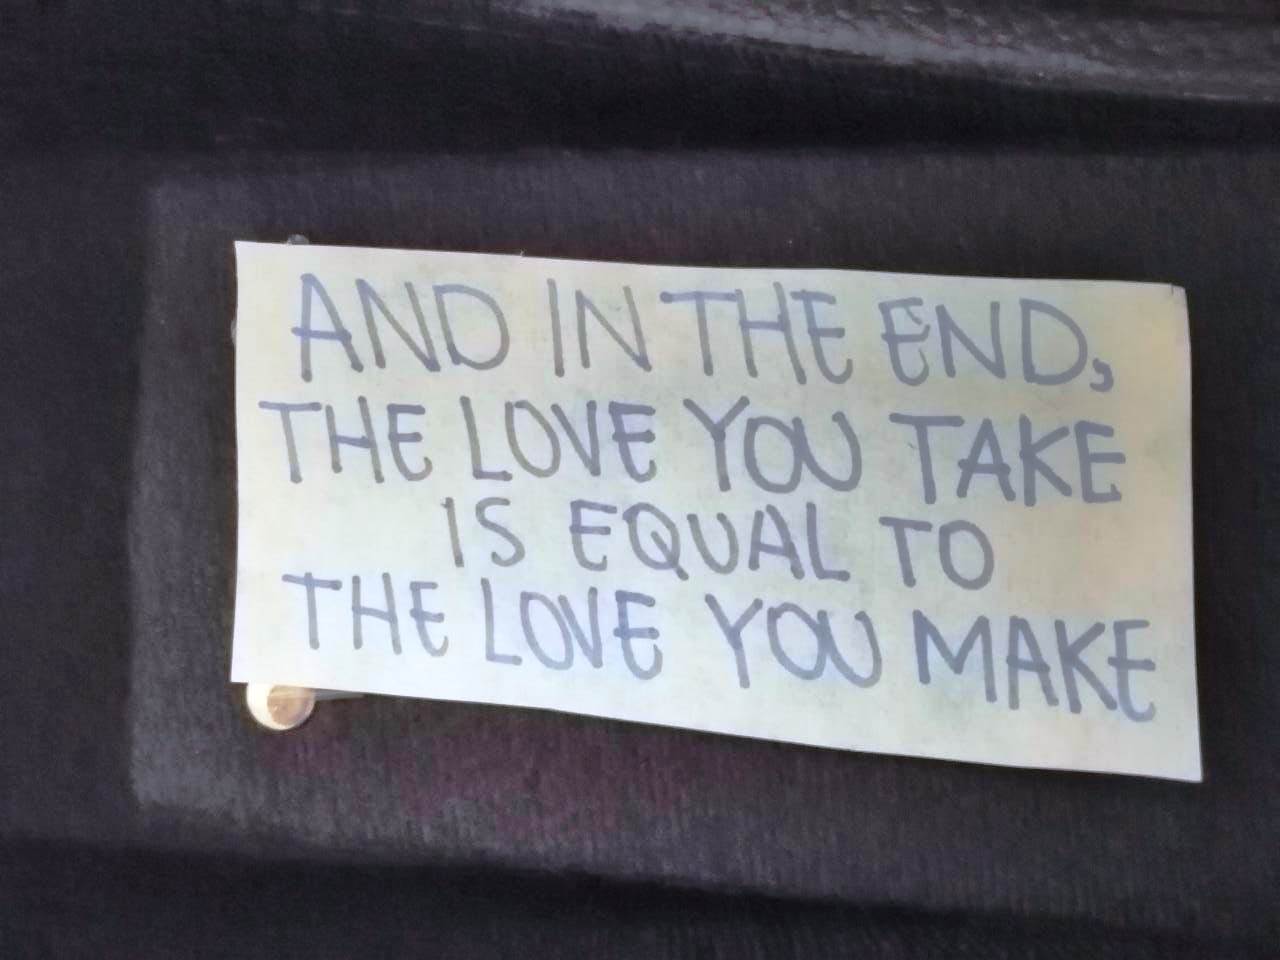 AND IN THE END,
THE LOVE YOU TAKE
IS EQUAL TO
THE LOVE YOU MAKE